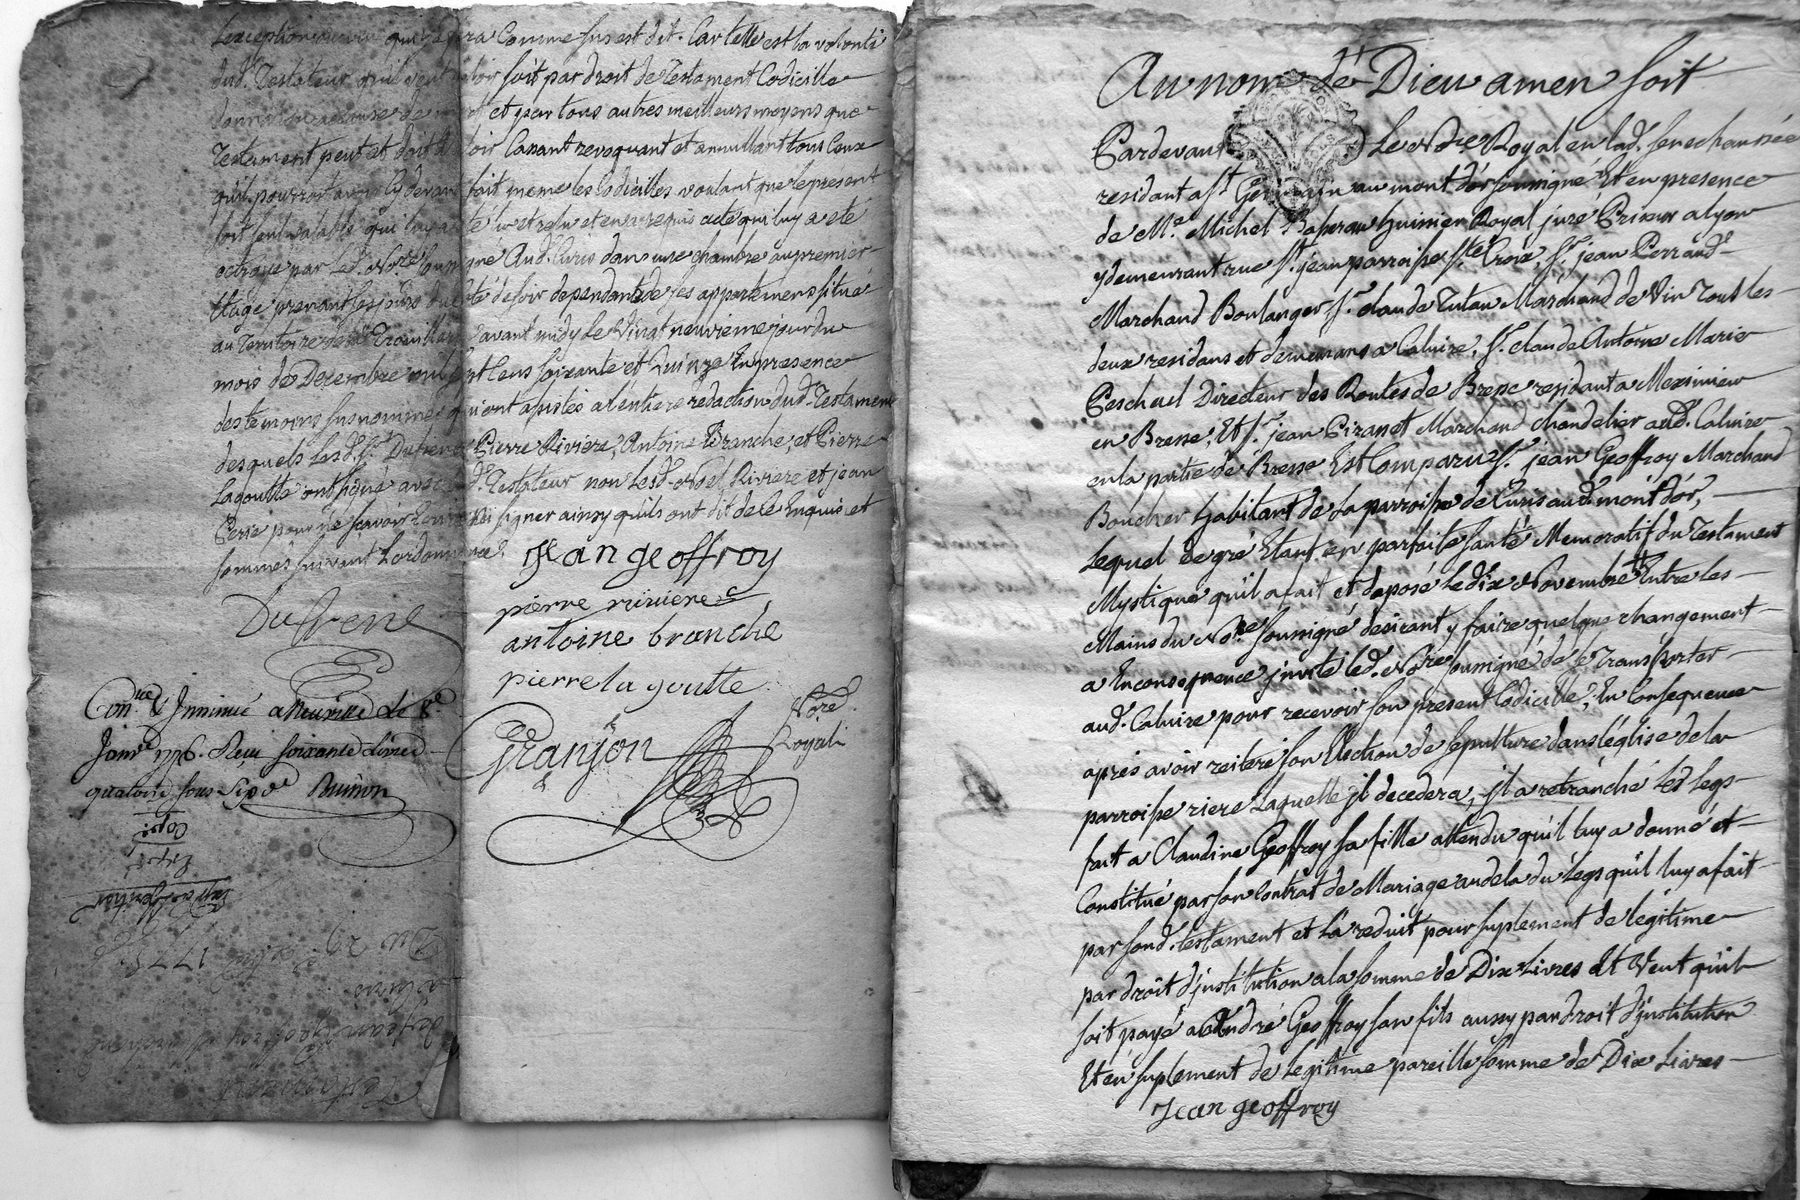 qui sera Comme sus est dit. Car telle est la volonté
dud. Testateur qu'il veut valoir soit par droit de Testament Codicille
donnation a cause de mort et par tous autres meilleurs moyens que
Testament peut et doit valoir Cassant revoquant et annullant tous Ceux
qu'il pourroit avoir cy devant fait meme les Codicilles voulant que le present
soit seul valable qui luy a été lu et relu et en a requis acte qui luy a été
octroyé par led. No.re soussigné Aud. Curis dans une chambre au premier
Etage prenant ses jours du coté de soir dependante de ses appartemens situé
au Territoire de avant midy le Vingt neuvieme jour du
mois de Decembre mil sept Cens soixante et Quinze En presence
des temoins sus nommés qui ont assistés a l'entiere redaction dud. Testament
desquels Lesd. Srs. Dufrene Pierre Riviere, Antoine Branche, et Pierre
Lagoutte ont signé avec led. Testateur non Lesd. Noel Riviere et jean
pour ne sçavoir Ecrire ni signer ainsy qu'ils ont dit de ce Enquis et
sommés suivant Lordonnance.
jean geoffroy
Dufrene
pierre riviere
antoine branche
pierre la goutte
Granjon No.re Royal
Con.lé & Insinué a Neuville Le 8.e
Janv.er 1776. Reçu soixante Livres
quatorze sous Six d.
Du 29 1775
de jean geoffroy
Testament
Au nom de Dieu amen soit
Pardevant Le No.re Royal en lad. senechaussée
residant a St. Germain au mont d'or soussigné Et en presence
de Me. Michel huissier Royal juré Priseur a Lyon
y demeurant rue St. jean parroisse Ste. Croix, Sr. jean Perraud
Marchand Boulanger Sr. claude Marchand de Vin Tous les
deux residans et demeurans a Caluire, Sr. claude Antoine Marie
Peschul Directeur des Routes de Bresse residant a Meximieux
en Bresse, Et Sr. jean Piranet Marchand chandelier aud. Caluire
en la partie de Bresse Est Comparu Sr. jean Geoffroy Marchand
Boucher habitant de La parroisse de Curis aud. mont d'or,
Lequel de gré Etant en parfaite santé Memoratif du Testament
Mystique qu'il a fait et deposé Le dix Novembre Entre les
Mains du No.re soussigné desirant y faire quelque changement
a En consequence invité led. No.re soussigné de se transporter
aud. Caluire pour recevoir son present Codicille, En Consequence
après avoir reiteré son Election de sepulture dans l'église de la
parroisse riere Laquelle il decedera, il a retranché les Legs
fait a Claudine Geoffroy sa fille attendu qu'il luy a donné et
Constitué par son Contrat de Mariage audela du Legs qu'il luy a fait
par sond. testament et La reduit pour suplement de legitime
par droit d'institution a la somme de Dix Livres Et Veut qu'il
soit payé a André Geoffroy son fils aussy par droit d'institution
Et en suplement de Legitime pareille somme de Dix Livres
jean geoffroy